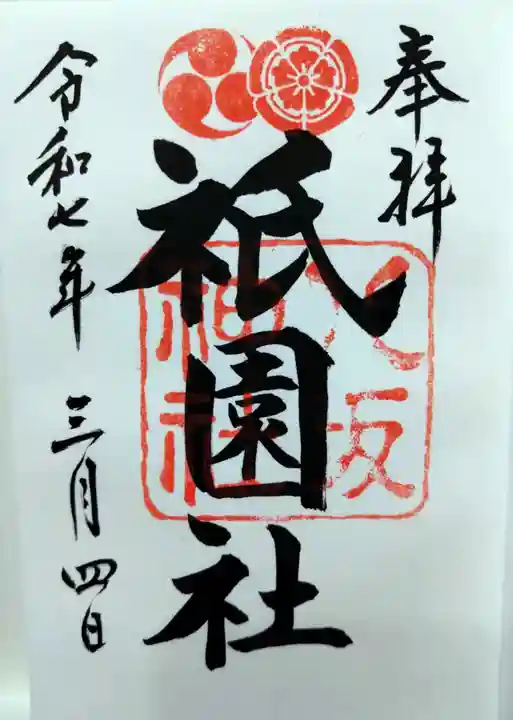 奉拝
祇園社
八坂神社
令和七年 三月四日